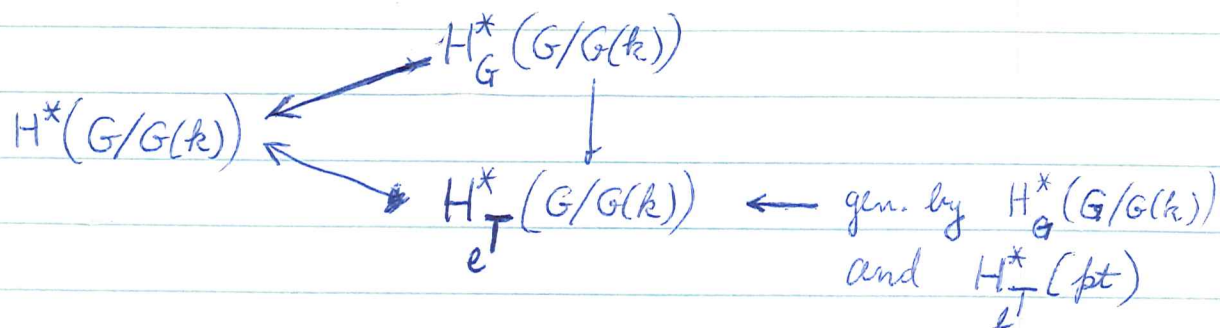 H*_G(G/G(k))
H*(G/G(k))
H*_{eT}(G/G(k)) ← gen. by H*_G(G/G(k))
and H*_{eT}(pt)